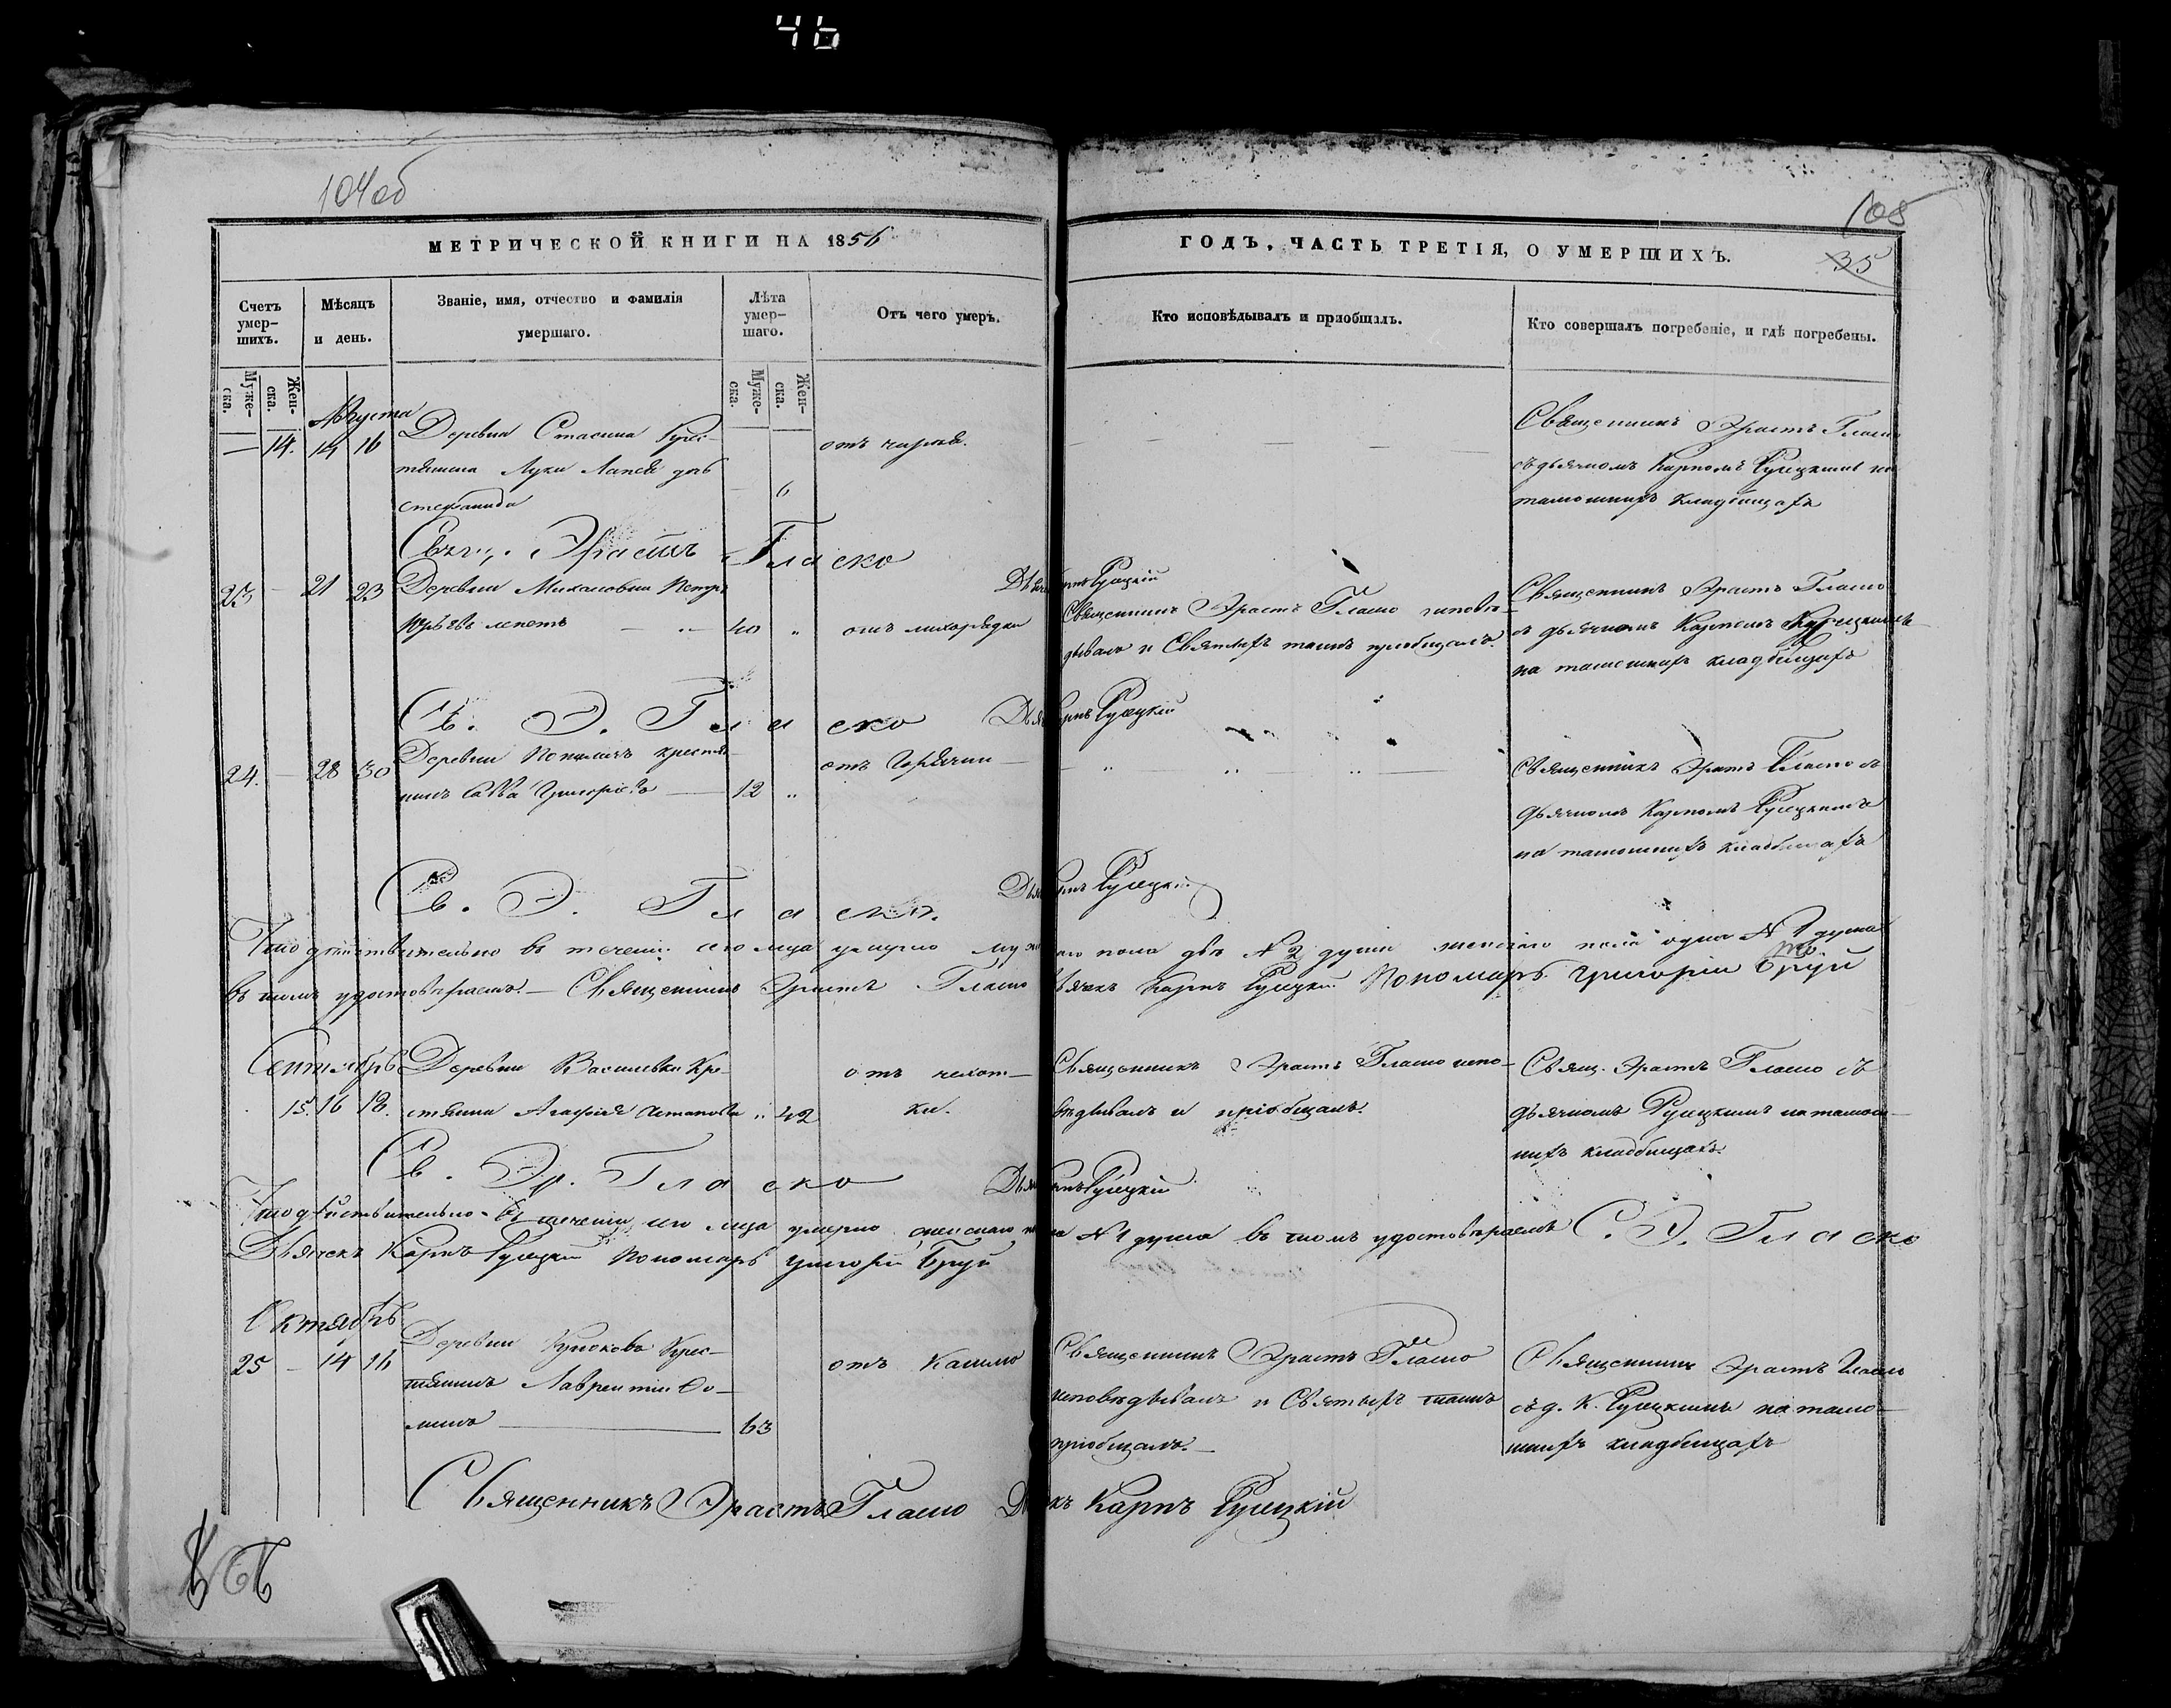 46
104об
105
35
МЕТРИЧЕСКОЙ КНИГИ НА 1856
ГОДЪ, ЧАСТЬ ТРЕТІЯ, О УМЕРШИХЪ.
Счетъ умер-
шихъ.
Мѣсяцъ
и день.
Званіе, имя, отчество и фамилія
умершаго.
Лѣта
умер-
шаго.
Отъ чего умеръ.
Кто исповѣдывалъ и пріобщалъ.
Кто совершалъ погребеніе, и гдѣ погребены.
Муже-
ска.
Жен-
ска.
Муже-
ска.
Жен-
ска.
Августа
— 14. 14 16
Деревни Стасина Крес-
тянина Луки дочь
Стефанида
6
отъ
Священникъ Эрастъ Гласко
съ дьячкомъ Карпомъ Рулецкимъ на
тамошнихъ кладбищахъ
Свящ. Эрастъ Гласко
Рулецкій
23 — 21 23
Деревни Михаловки Петръ
Юрьевъ
40 „
отъ лихорадки
Священникъ Эрастъ Гласко исповѣ-
дывалъ и Святыхъ таинъ пріобщалъ.
Священникъ Эрастъ Гласко
съ дьячкомъ Карпомъ Рулецкимъ
на тамошнихъ кладбищахъ
Св. Э. Гласко
Рулецкій
24. — 28 30
Деревни крестя-
нинъ Савва Григорьевъ
12 „
отъ Горячки
Священникъ Эрастъ Гласко съ
дьячкомъ Карпомъ Рулецкимъ
на тамошнихъ кладбищахъ
Св. Э. Гласко.
Рулецкій
Что дѣйствительно въ теченіи сего мца умерло мужескаго пола двѣ № 2 души женскаго пола одна № 1 душа
въ томъ удостовѣряемъ. — Священникъ Эрастъ Гласко Дьячекъ Карпъ Рулецкій Пономарь Григорій Бруй
Сентябрь
15. 16 18.
Деревни Василевки Кре-
стянка Агафія Степанова
„ 42
отъ чехот-
ки.
Священникъ Эрастъ Гласко испо-
вѣдывалъ и пріобщалъ.
Свящ. Эрастъ Гласко съ
дьячкомъ Рулецкимъ на тамош-
нихъ кладбищахъ
Св. Эр. Гласко
Рулецкій
Что дѣйствительно въ теченіи сего мца умерло женскаго пола № 1 душа въ томъ удостовѣряемъ С. Э. Гласко
Дьячекъ Карпъ Рулецкій Пономарь Григорій Бруй
Октябрь
25 — 14 16
Деревни Крес-
тянинъ Лаврентій Фо-
минъ
63
отъ Кашлю
Священникъ Эрастъ Гласко
исповѣдывалъ и Святыхъ таинъ
пріобщалъ.
Священникъ Эрастъ Гласко
съ д. К. Рулецкимъ на тамо-
шнихъ кладбищахъ
Священникъ Эрастъ Гласко Дьячекъ Карпъ Рулецкій